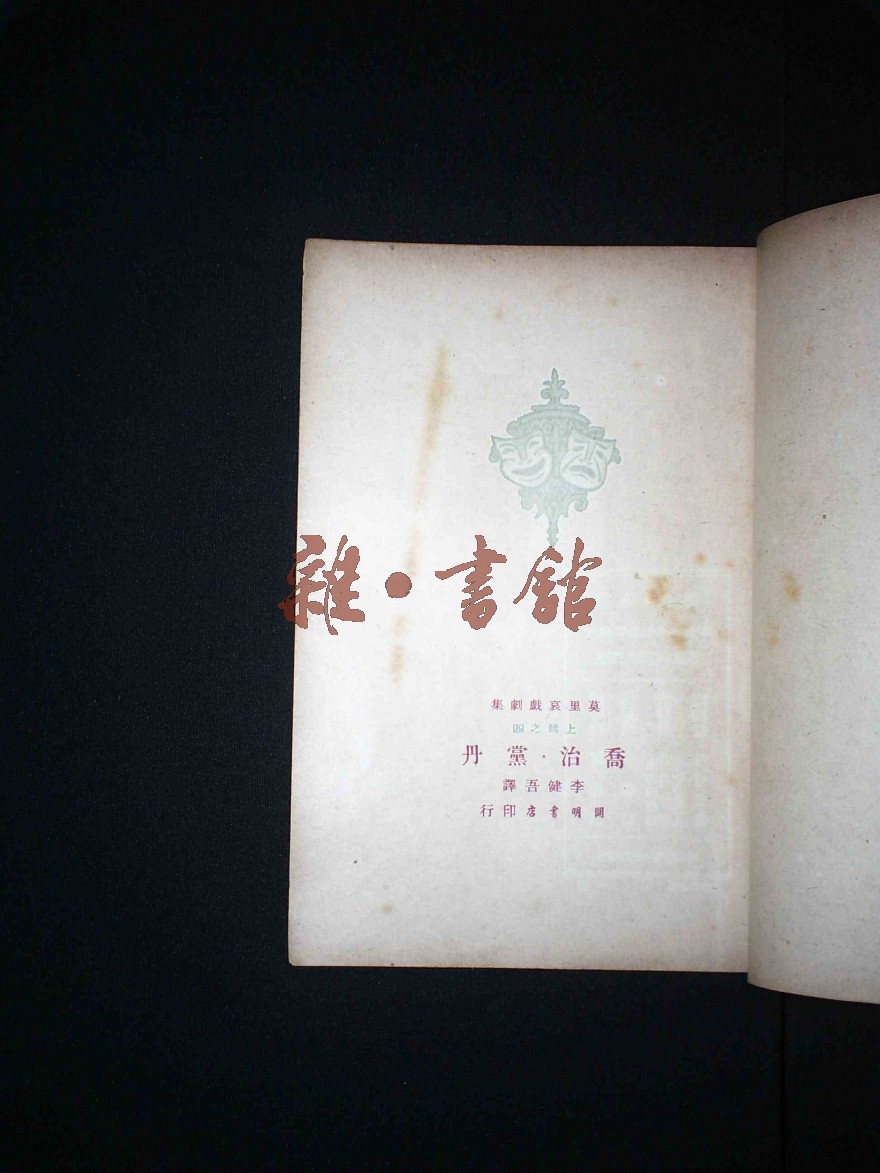 雜·書館
莫里哀戲劇集
上輯之四
喬治·黨丹
李健吾譯
開明書店印行